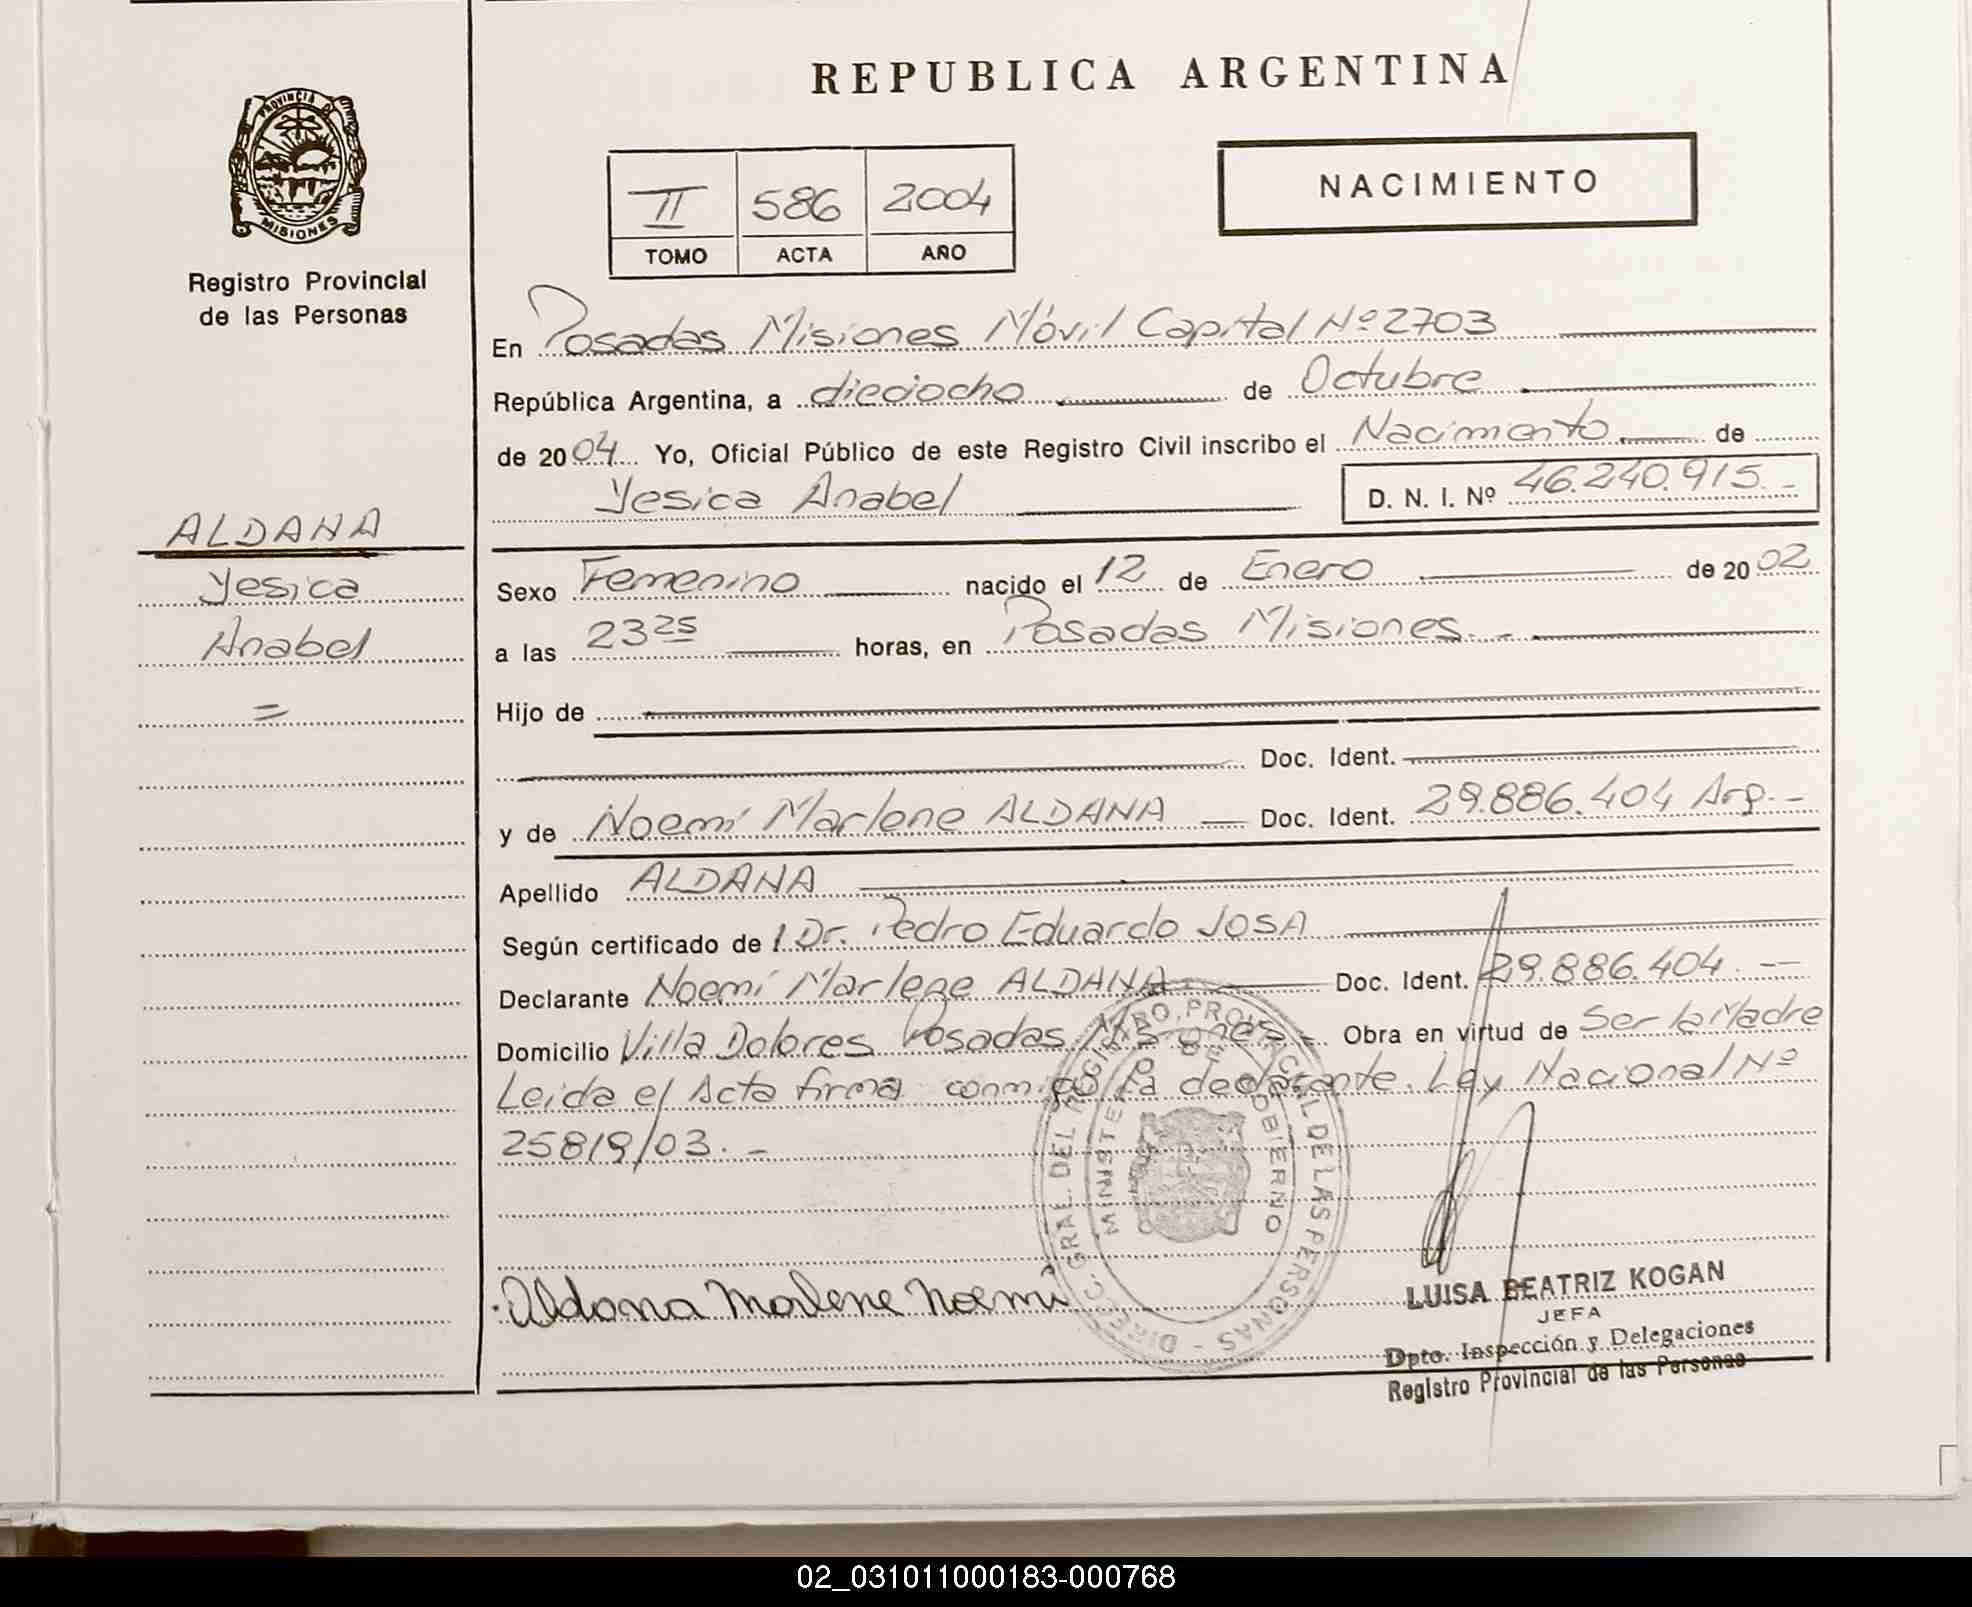 REPUBLICA ARGENTINA
PROVINCIA DE
MISIONES
Registro Provincial
de las Personas
NACIMIENTO
II 586 2004
TOMO ACTA AÑO
En Posadas Misiones Móvil Capital Nº 2703
República Argentina, a dieciocho de Octubre
de 2004 Yo, Oficial Público de este Registro Civil inscribo el Nacimiento de
Yesica Anabel D. N. I. Nº 46.240.915.-
ALDANA
Yesica
Anabel
=
Sexo Femenino nacido el 12 de Enero de 2002
a las 23 25 horas, en Posadas Misiones.-
Hijo de
Doc. Ident.
y de Noemí Marlene ALDANA Doc. Ident. 29.886.404 Arg.-
Apellido ALDANA
Según certificado de l Dr. Pedro Eduardo JOSA
Declarante Noemí Marlene ALDANA Doc. Ident. 29.886.404.--
Domicilio Villa Dolores Posadas Misiones.- Obra en virtud de Ser la Madre
Leida el Acta firma conmigo la declarante. Ley Nacional Nº
25819/03.-
DIREC. GRAL. DEL REGISTRO PROVINCIAL DE LAS PERSONAS -
MINISTERIO DE GOBIERNO
Aldana Marlene Noemi
LUISA BEATRIZ KOGAN
JEFA
Dpto. Inspección y Delegaciones
Registro Provincial de las Personas
02_031011000183-000768